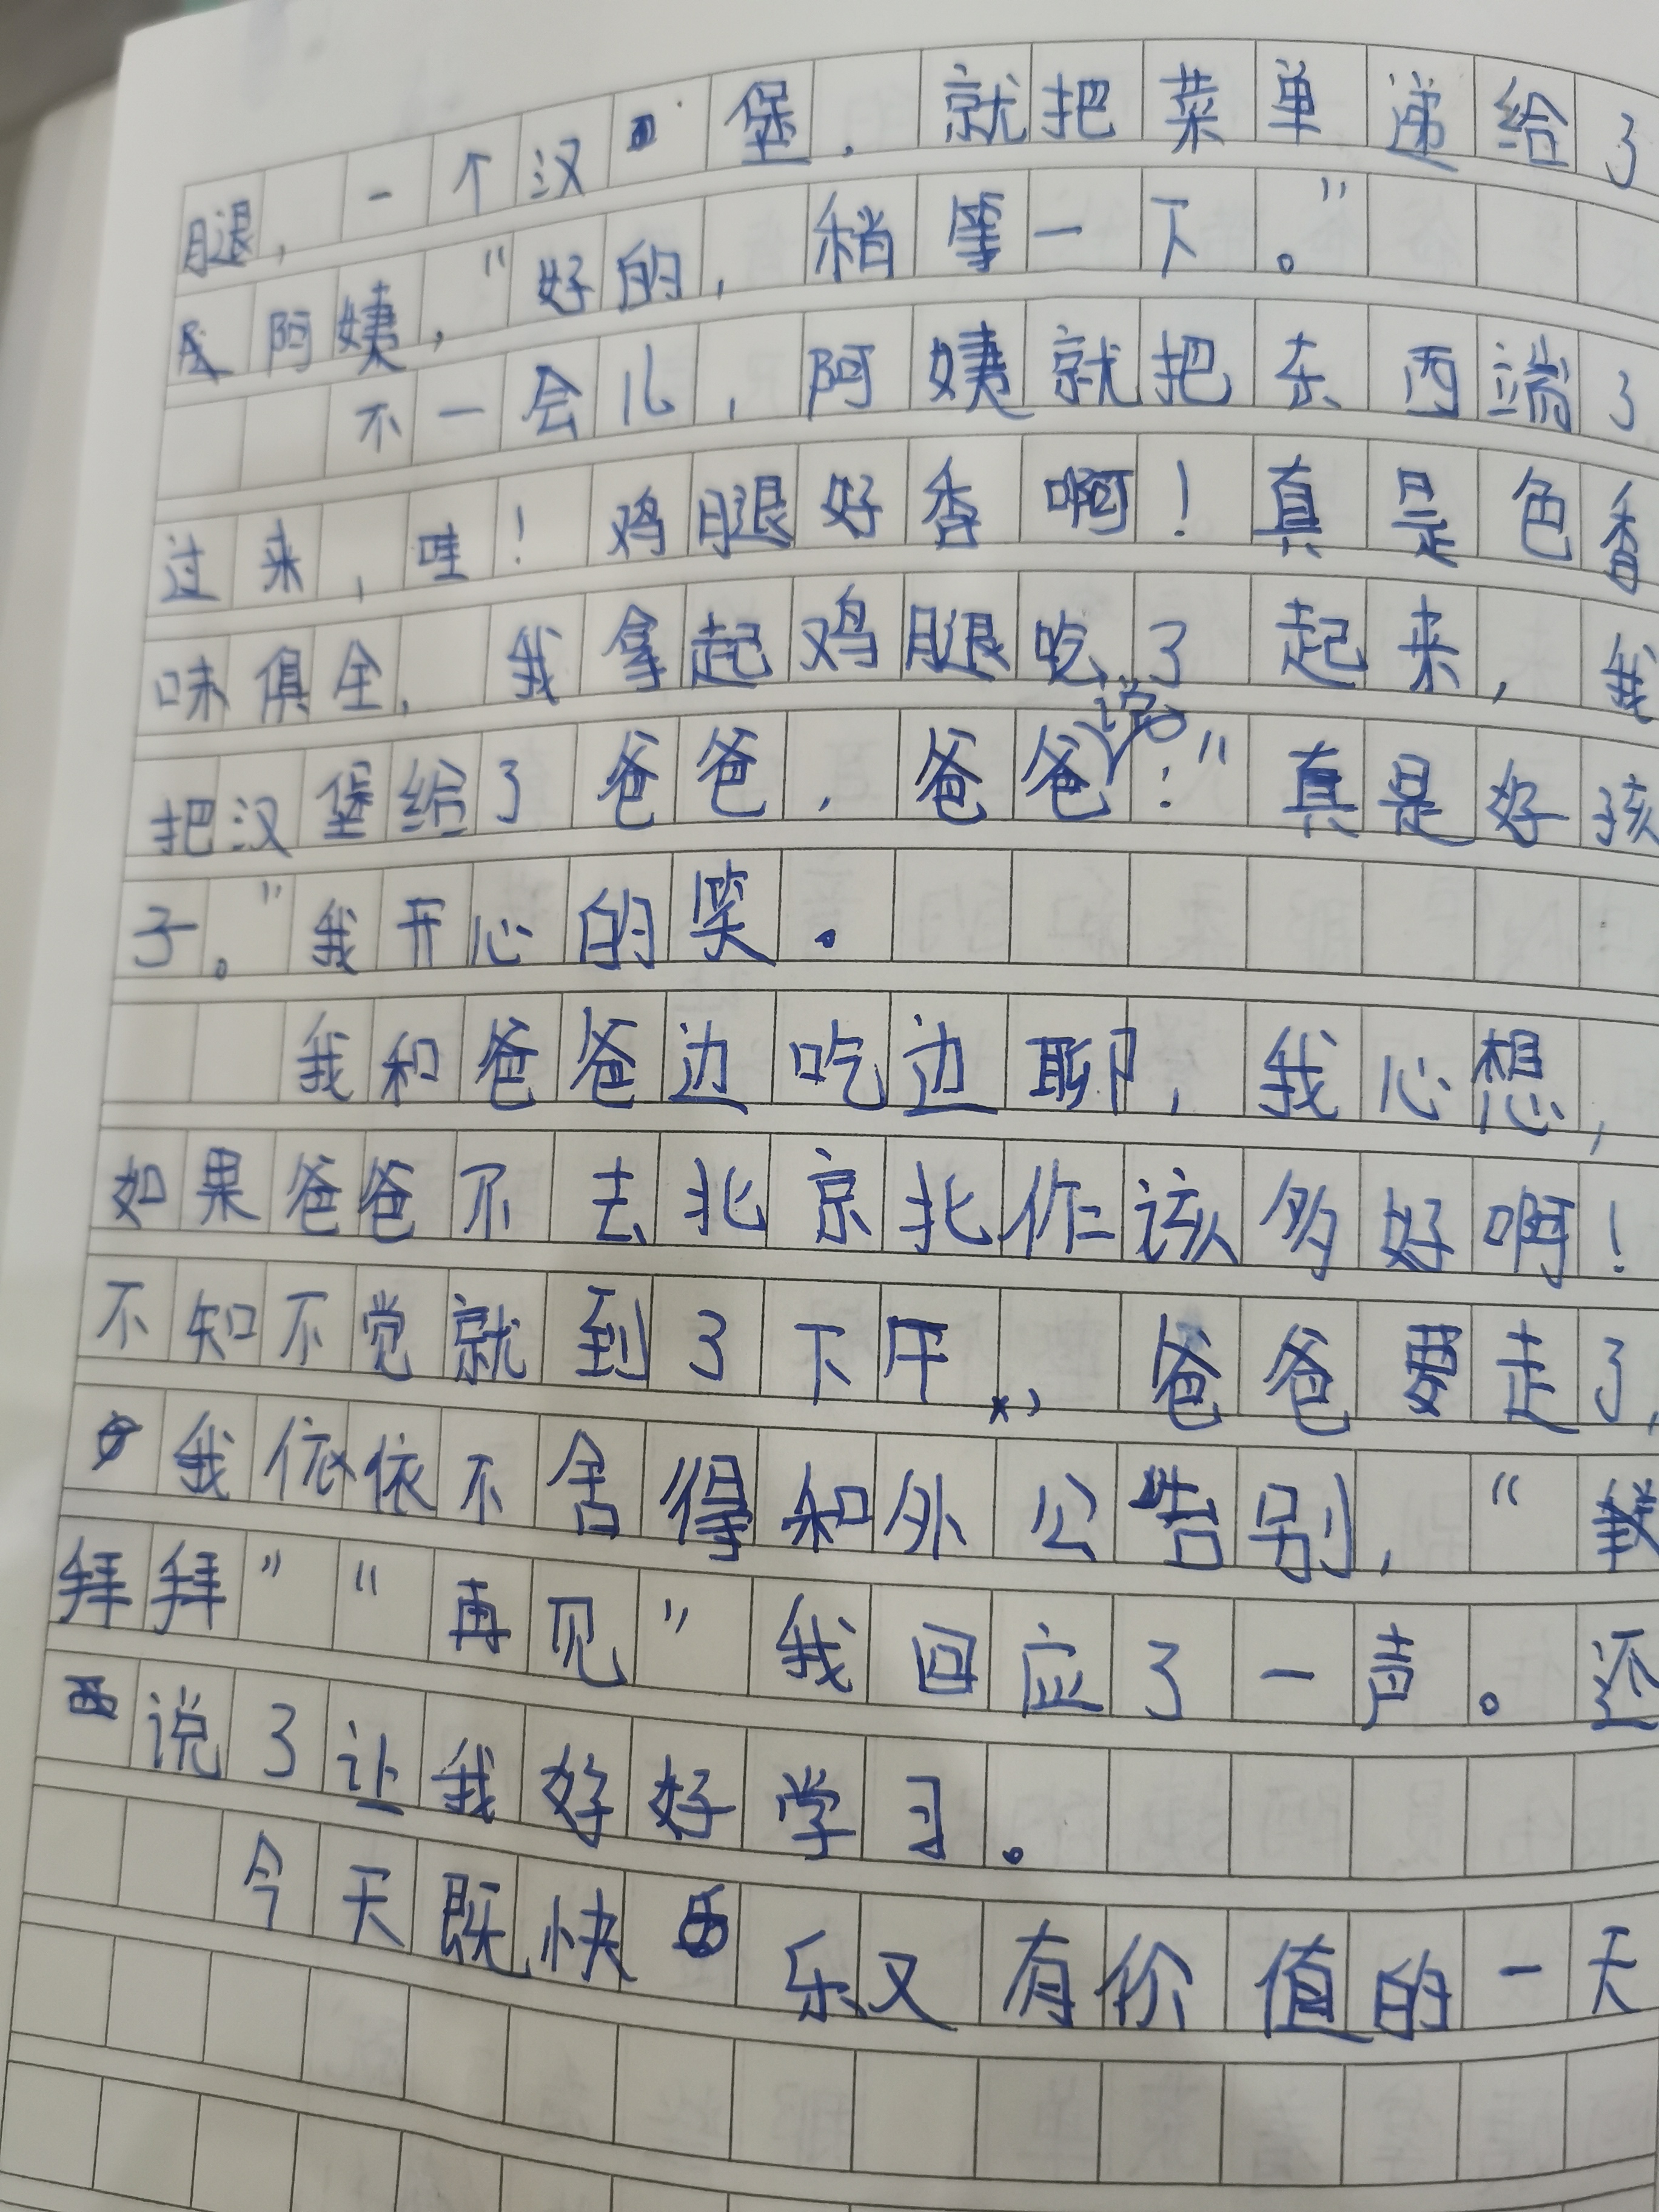 腿,一个汉堡,就把菜单递给了
阿姨,“好的,稍等一下。”
不一会儿,阿姨就把东西端了
过来,哇!鸡腿好香啊!真是色香
味俱全,我拿起鸡腿吃了起来,我
把汉堡给了爸爸,爸爸说:“真是好孩
子。”我开心的笑。
我和爸爸边吃边聊,我心想,
如果爸爸不去北京北作该多好啊!
不知不觉就到了下午,爸爸要走了,
我依依不舍得和外公告别,“
拜拜”“再见”我回应了一声。还
说了让我好好学习。
今天既快乐又有价值的一天